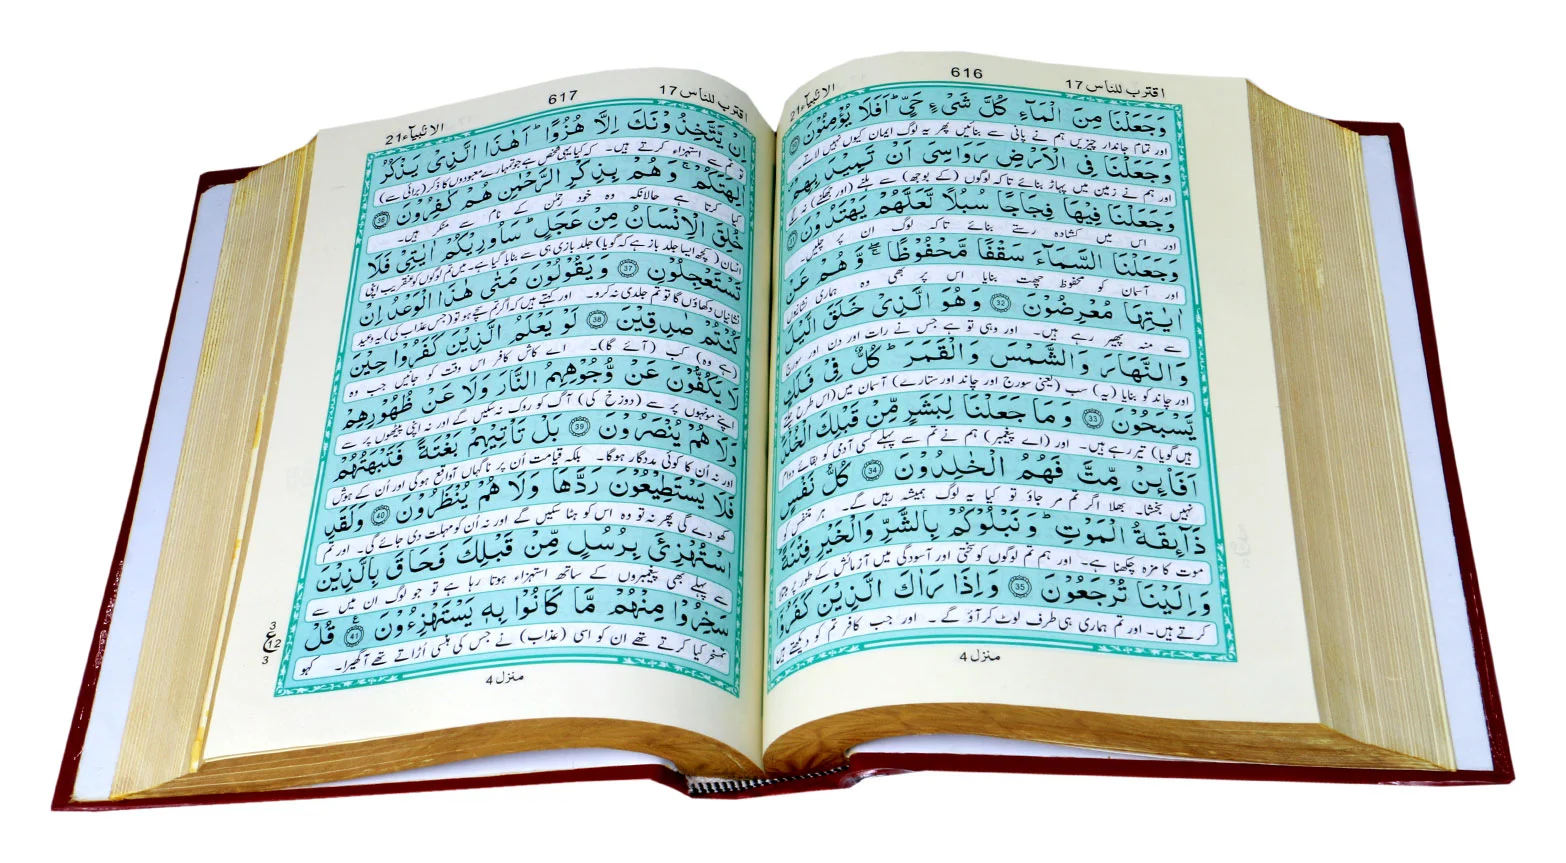 616
اقترب للناس 17
الانبیآء 21
وَجَعَلْنَا مِنَ الْمَآءِ كُلَّ شَیْءٍ حَیٍّ ؕ اَفَلَا یُؤْمِنُوْنَ
اور تمام جاندار چیزیں ہم نے پانی سے بنائیں پھر یہ لوگ ایمان کیوں نہیں لاتے۔
وَجَعَلْنَا فِی الْاَرْضِ رَوَاسِیَ اَنْ تَمِیْدَ بِهِمْ
اور ہم نے زمین میں پہاڑ بنائے تاکہ لوگوں (کے بوجھ) سے ہلنے (اور جھکنے)
وَجَعَلْنَا فِیْهَا فِجَاجًا سُبُلًا لَّعَلَّهُمْ یَهْتَدُوْنَ
اور اس میں کشادہ رستے بنائے تاکہ لوگ ان پر چلیں۔
وَجَعَلْنَا السَّمَآءَ سَقْفًا مَّحْفُوْظًا ۖۚ وَّهُمْ عَنْ
اور آسمان کو محفوظ چھت بنایا اس پر بھی وہ ہماری نشانیوں
اٰیٰتِهَا مُعْرِضُوْنَ 32 وَهُوَ الَّذِیْ خَلَقَ الَّیْلَ
سے منہ پھیر رہے ہیں۔ اور وہی تو ہے جس نے رات اور دن اور سورج
وَالنَّهَارَ وَالشَّمْسَ وَالْقَمَرَ ؕ كُلٌّ فِیْ فَلَكٍ
اور چاند کو بنایا (یہ) سب (یعنی سورج اور چاند اور ستارے) آسمان میں (اس طرح چلتے
یَّسْبَحُوْنَ 33 وَمَا جَعَلْنَا لِبَشَرٍ مِّنْ قَبْلِكَ الْخُلْدَ
ہیں گویا) تیر رہے ہیں۔ اور (اے پیغمبر) ہم نے تم سے پہلے کسی آدمی کو بقائے دوام
اَفَا۠ئِنْ مِّتَّ فَهُمُ الْخٰلِدُوْنَ 34 كُلُّ نَفْسٍ
نہیں بخشا۔ بھلا اگر تم مر جاؤ تو کیا یہ لوگ ہمیشہ رہیں گے۔ ہر متنفس کو
ذَآئِقَةُ الْمَوْتِ ؕ وَنَبْلُوْكُمْ بِالشَّرِّ وَالْخَیْرِ فِتْنَةً
موت کا مزہ چکھنا ہے۔ اور ہم تم لوگوں کو سختی اور آسودگی میں آزمائش کے طور پر
وَاِلَیْنَا تُرْجَعُوْنَ 35 وَاِذَا رَاٰكَ الَّذِیْنَ كَفَرُوْۤا
کرتے ہیں۔ اور تم ہماری ہی طرف لوٹ کر آؤ گے۔ اور جب کافر تم کو دیکھتے ہیں
منزل 4
617
اقترب للناس 17
الانبیآء 21
اِنْ یَّتَّخِذُوْنَكَ اِلَّا هُزُوًا ؕ اَهٰذَا الَّذِیْ یَذْكُرُ
تو تم سے استہزاء کرتے ہیں۔ کہ کیا یہی شخص ہے جو تمہارے معبودوں کا ذکر (برائی سے)
اٰلِهَتَكُمْ ۚ وَهُمْ بِذِكْرِ الرَّحْمٰنِ هُمْ كٰفِرُوْنَ 36
کیا کرتا ہے حالانکہ وہ خود رحمٰن کے نام سے منکر ہیں۔
خُلِقَ الْاِنْسَانُ مِنْ عَجَلٍ ؕ سَاُورِیْكُمْ اٰیٰتِیْ فَلَا
انسان (کچھ ایسا جلد باز ہے کہ گویا) جلد بازی ہی سے بنایا گیا ہے۔ میں تم لوگوں کو عنقریب اپنی
تَسْتَعْجِلُوْنِ 37 وَیَقُوْلُوْنَ مَتٰی هٰذَا الْوَعْدُ اِنْ
نشانیاں دکھاؤں گا تو تم جلدی نہ کرو۔ اور کہتے ہیں کہ اگر تم سچے ہو تو (جس عذاب کی) یہ وعید
كُنْتُمْ صٰدِقِیْنَ 38 لَوْ یَعْلَمُ الَّذِیْنَ كَفَرُوْا حِیْنَ
(ہے وہ) کب (آئے گا)۔ اے کاش کافر اس وقت کو جانیں جب وہ
لَا یَكُفُّوْنَ عَنْ وُّجُوْهِهِمُ النَّارَ وَلَا عَنْ ظُهُوْرِهِمْ
اپنے مونہوں پر سے (دوزخ کی) آگ کو روک نہ سکیں گے اور نہ اپنی پیٹھوں پر سے
وَلَا هُمْ یُنْصَرُوْنَ 39 بَلْ تَاْتِیْهِمْ بَغْتَةً فَتَبْهَتُهُمْ
اور نہ اُن کا کوئی مددگار ہوگا۔ بلکہ قیامت اُن پر ناگہاں آ واقع ہوگی اور اُن کے ہوش
فَلَا یَسْتَطِیْعُوْنَ رَدَّهَا وَلَا هُمْ یُنْظَرُوْنَ 40 وَلَقَدِ
کھو دے گی پھر نہ تو وہ اس کو ہٹا سکیں گے اور نہ اُن کو مہلت دی جائے گی۔ اور تم
اسْتُهْزِئَ بِرُسُلٍ مِّنْ قَبْلِكَ فَحَاقَ بِالَّذِیْنَ
سے پہلے بھی پیغمبروں کے ساتھ استہزاء ہوتا رہا ہے تو جو لوگ ان میں سے
سَخِرُوْا مِنْهُمْ مَّا كَانُوْا بِهٖ یَسْتَهْزِءُوْنَ 41 قُلْ
تمسخر کیا کرتے تھے ان کو اسی (عذاب) نے جس کی ہنسی اُڑاتے تھے آ گھیرا۔ کہو
3
ع 12
3
منزل 4